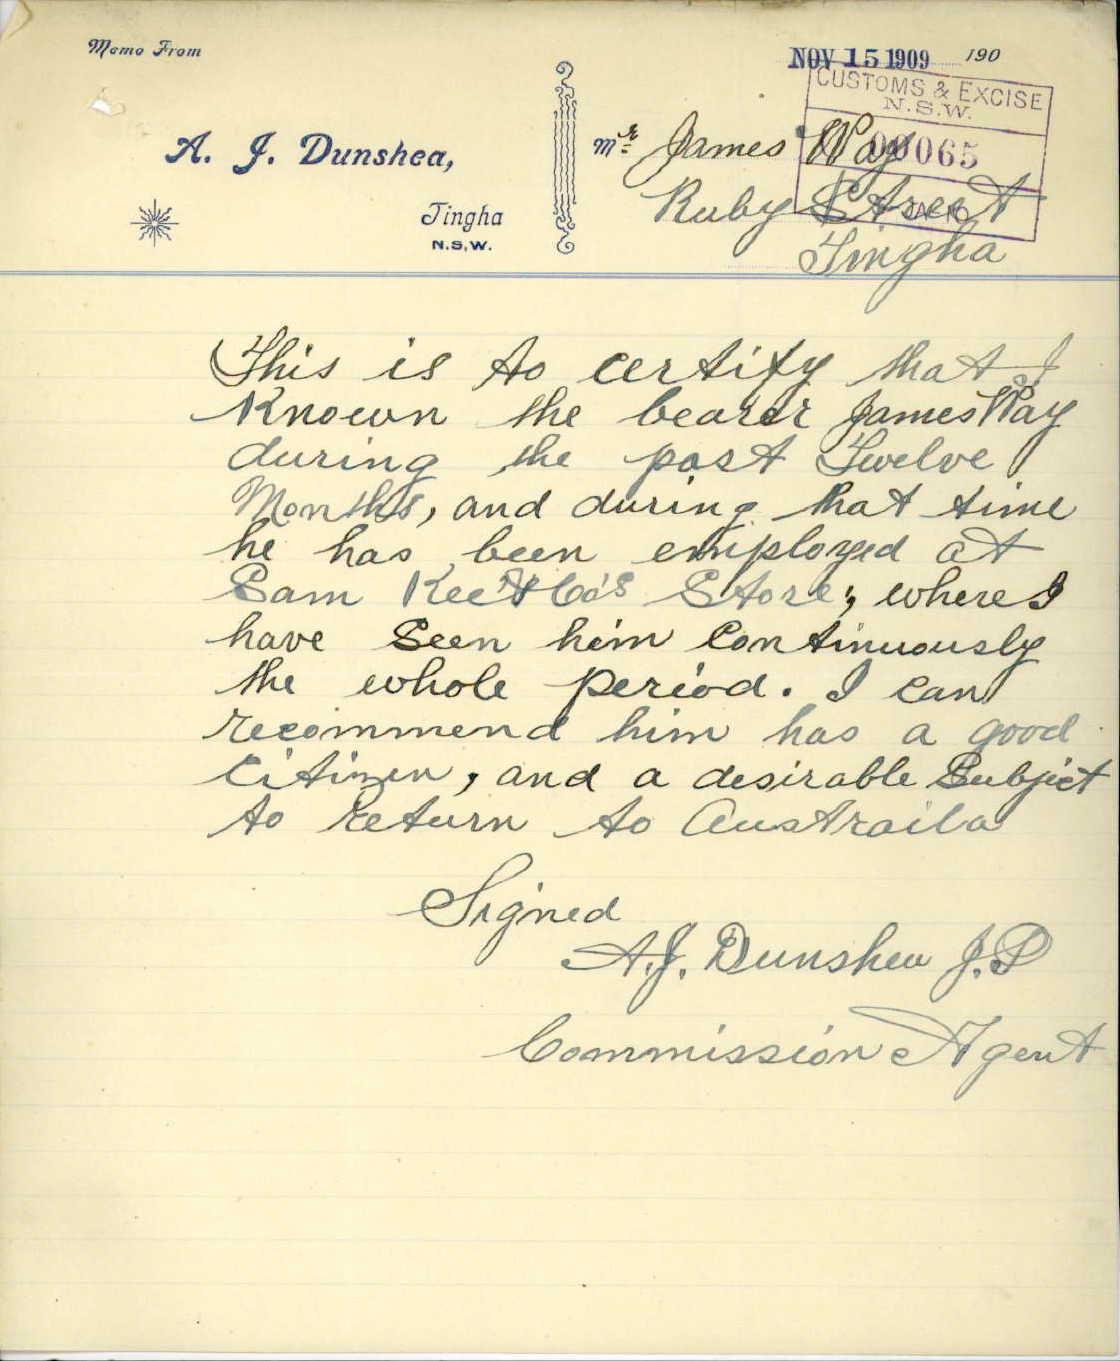 Memo From
NOV 15 1909 190
CUSTOMS & EXCISE
N.S.W.
A. J. Dunshea,
Mr James Way
09065
Ruby Street
Tingha
N.S.W.
Tingha
This is to certify that I
Known the bearer James Way
during the past Twelve
Months, and during that time
he has been employed at
Sam Kee & Co's Store, where I
have Seen him Continuously
the whole period. I can
recommend him has a good
Citizen, and a desirable Subject
to Return to Austraila
Signed
A.J. Dunshea J.P
Commission Agent